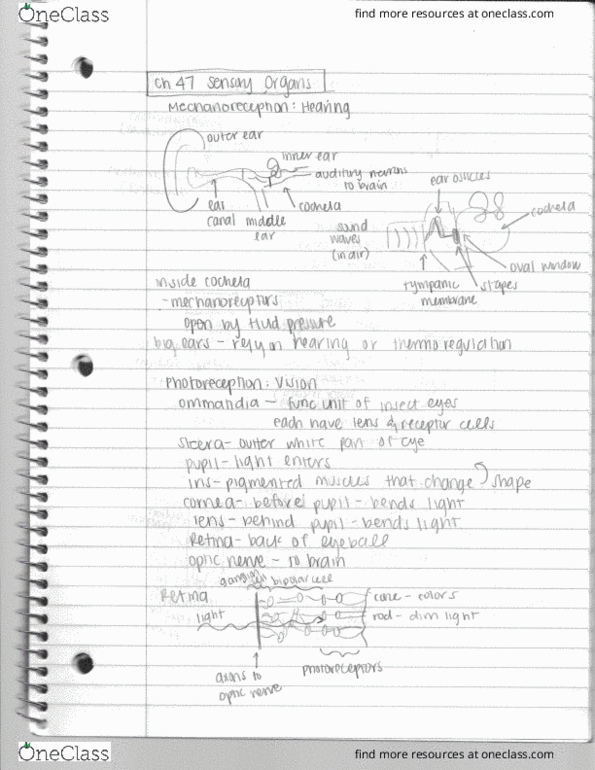 OneClass
find more resources at oneclass.com
Ch 47 Sensory Organs
Mechanoreception: Hearing
outer ear
inner ear
auditory neurons
to brain
ear ossicles
ear
canal
middle
ear
cochela
sound
waves
(in air)
cochela
oval window
tympanic
membrane
stapes
inside cochela
- mechanoreceptors
open by fluid pressure
big ears - rely on hearing or thermoregulation
Photoreception: Vision
ommandia - func unit of insect eyes
each have lens & receptor cells
sclera - outter white part of eye
pupil - light enters
iris - pigmented muscles that change shape
cornea - before pupil - bends light
lens - behind pupil - bends light
Retina - back of eyeball
optic nerve - to brain
ganglion bipolar cell
Retina
cone - colors
light
rod - dim light
axons to
optic nerve
photoreceptors
OneClass
find more resources at oneclass.com